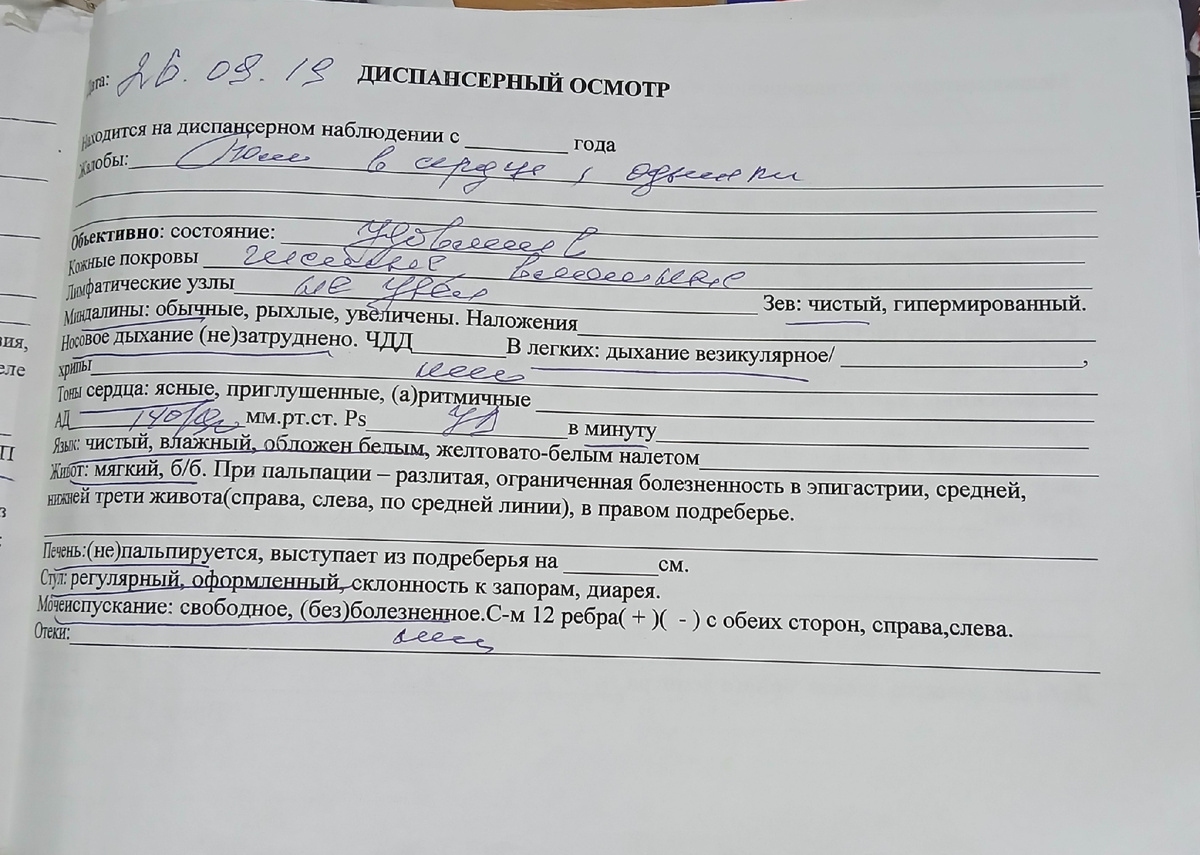 Дата: 26.09.19 ДИСПАНСЕРНЫЙ ОСМОТР
Находится на диспансерном наблюдении с ________ года
Жалобы: Боли в сердце, одышки
Объективно: состояние: удовлетв
Кожные покровы чистые,
Лимфатические узлы не увел Зев: чистый, гипермированный.
Миндалины: обычные, рыхлые, увеличены. Наложения
Носовое дыхание (не)затруднено. ЧДД________В легких: дыхание везикулярное/____________________,
хрипы нет
Тоны сердца: ясные, приглушенные, (а)ритмичные
АД 140/ мм.рт.ст. Ps в минуту
Язык: чистый, влажный, обложен белым, желтовато-белым налетом
Живот: мягкий, б/б. При пальпации – разлитая, ограниченная болезненность в эпигастрии, средней,
нижней трети живота(справа, слева, по средней линии), в правом подреберье.
Печень:(не)пальпируется, выступает из подреберья на ________см.
Стул: регулярный, оформленный, склонность к запорам, диарея.
Мочеиспускание: свободное, (без)болезненное.С-м 12 ребра( + )( - ) с обеих сторон, справа,слева.
Отеки: нет
вия,
еле
П
з